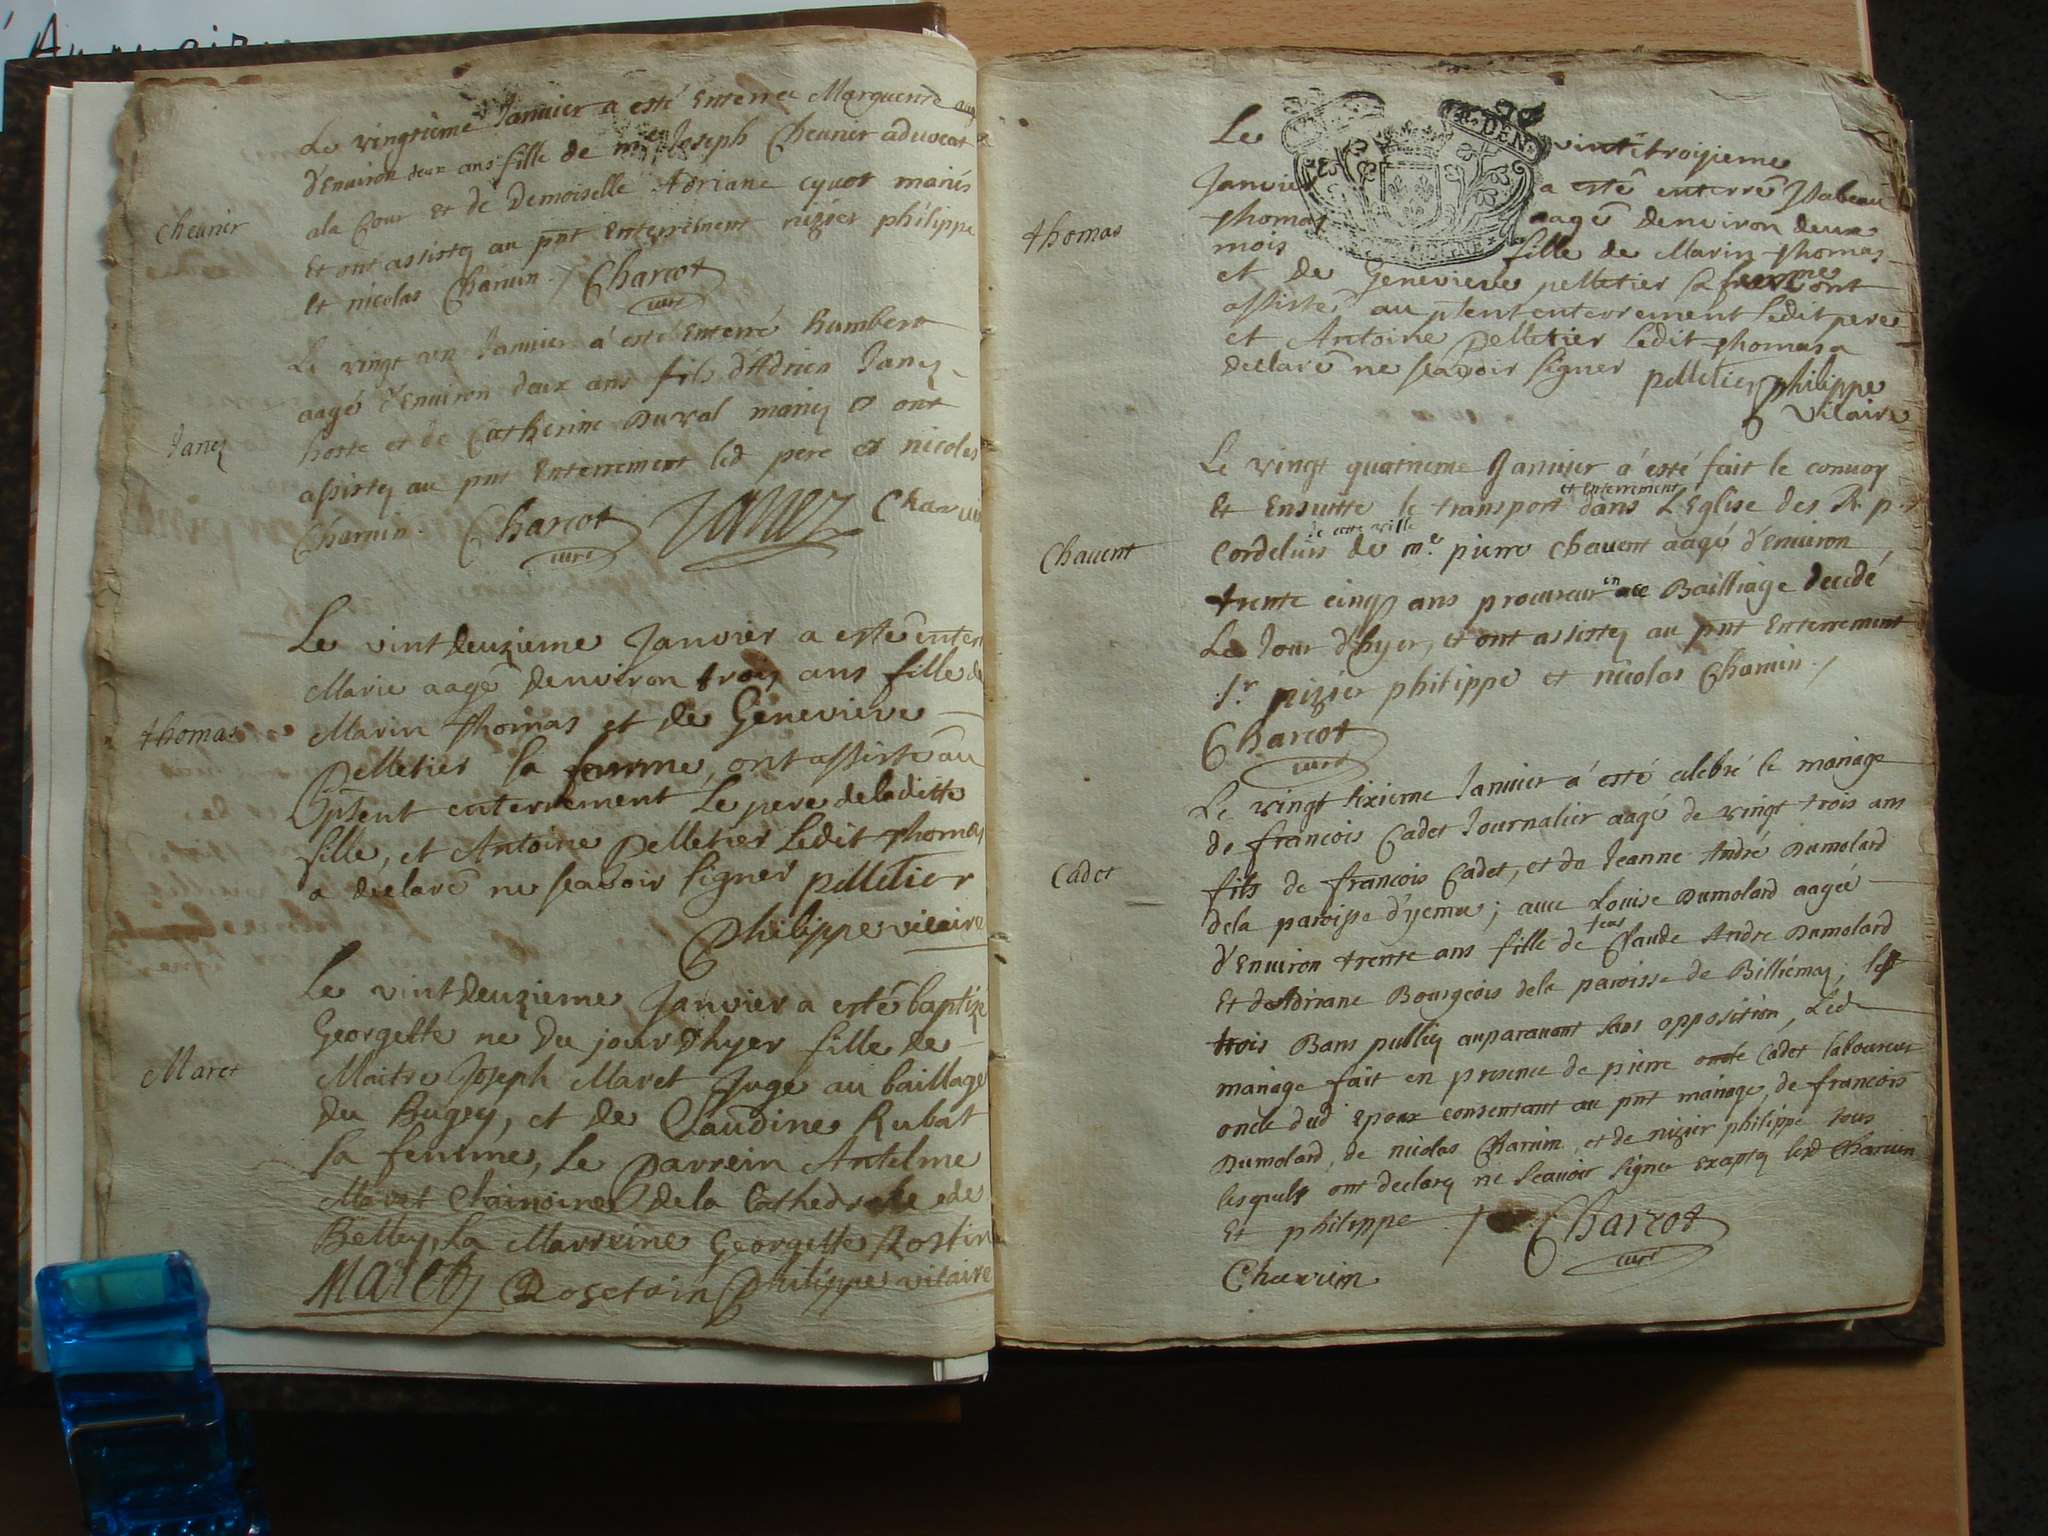 Le vingtième Janvier a esté Enterreé Marguerite aag
d'Environ deux ans fille de me Joseph Cheuner advocat
ala Cour Et de Demoiselle Adriane cyuot mariés
Cheuner
Et ont assistez au pnt Enterrement nizier philippe
Et nicolas Charuin ./ Charcot
curé
Le vingt un Janvier a esté Enterré Humbert
aagé d'Environ deux ans fils d'Adrien Janez
hoste et de Catherine Duval mariez Et ont
Janez
assistez au pnt Enterrement led pere et nicolas
Charuin. Charcot Janez Charuin
curé
Le vint deuzieme Janvier a esté enterré
Marie aagé denviron trois ans fille de
Marin thomas et de Genevieve
thomas
Pelletier sa femme, ont assiste au
psent enterrement Le pere deladitte
fille, et Antoine Pelletier Ledit thomas
a declaré ne scavoir signer pelletier
Philippe vicaire
Le vint deuzieme Janvier a esté baptize
Georgette ne Du jour dhyer fille de
Maret
Maitre Joseph Maret Juge au baillage
Du Bugey, et de Claudine Rubat
sa femme, Le Parrein Antelme
Maret Chainoine dela Cathedrale de
Belley, La Marreine Georgette Rostin
Maret Rosetain Philippe vicaire
Le vint troizieme
Janvier a esté enterré Isabeau
thomas
thomas aagé denviron deux
mois fille de Marin thomas
et de Genevieve pelletier sa femme ont
assisté au psent enterrement Ledit pere
et Antoine Pelletier Ledit thomas a
declaré ne scavoir signer pelletier philippe
vicaire
Le vingt quatrieme Janvier a esté fait le convoy
et Enterrement
Et Ensuitte le transport dans L'Eglise des R. p.
de cette ville
Cordeliers de me. pierre Chauent aagé d'Environ
Chauent
en
trente cinq ans procureur ace Bailliage decedé
Le Jour d'hyer, et ont assistez au pnt Enterrement
Sr. nizier philippe et nicolas Charuin ./
Charcot
curé
Le vingt sixieme Janvier a esté celebré le mariage
de francois Cadet Journalier aagé de vingt trois ans
fils de francois Cadet, et de Jeanne André Dumolard
Cadet
dela paroisse d'yenne; auec Louise Dumolard aagée
feus
d'Environ trente ans fille de Claude Andre Dumolard
Et de Adriane Bourgeois dela paroisse de Billiémaz, les
trois Bans publiez auparauant sans opposition, Led
mariage fait en presence de pierre oncle Cadet laboureur
oncle dud Epoux consentant au pnt mariage, de francois
Dumolard, de nicolas Charuin, et de nizier philippe tous
lesquels ont declarez ne scauoir signer Exceptez lesd Charuin
Et philippe ./ Charcot
curé
Charuin